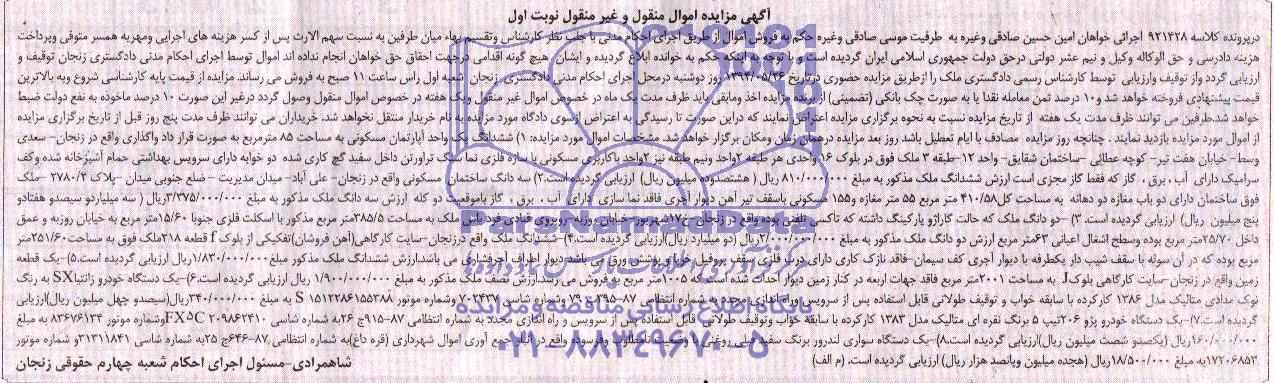 آگهی مزایده اموال منقول و غیر منقول نوبت اول
درپرونده کلاسه ۹۲۱۴۲۸ اجرائی خواهان امین حسین صادقی وغیره به طرفیت موسی صادقی وغیره حکم به فروش اموال از طریق اجرای احکام مدنی با جلب نظر کارشناس وتقسیم بهاء میان طرفین به نسبت سهم الارث پس از کسر هزینه های اجرایی ومهریه همسر متوفی وپرداخت
هزینه دادرسی و حق الوکاله وکیل و نیم عشر دولتی درحق دولت جمهوری اسلامی ایران گردیده است و با توجه به اینکه حکم به خوانده ابلاغ گردیده و ایشان هیچ گونه اقدامی درجهت احقاق حق خواهان انجام نداده اند اموال توسط اجرای احکام مدنی دادگستری زنجان توقیف و
ارزیابی گردد واز توقیف وارزیابی توسط کارشناس رسمی دادگستری ملک را ازطریق مزایده حضوری درتاریخ ۱۳۹۳/۰۵/۲۶ روز دوشنبه درمحل اجرای احکام مدنی دادگستری زنجان شعبه اول راس ساعت ۱۱ صبح به فروش می رساند. مزایده از قیمت پایه کارشناسی شروع وبه بالاترین
قیمت پیشنهادی فروخته خواهد شد و۱۰ درصد ثمن معامله نقدا یا به صورت چک بانکی (تضمینی) از برنده مزایده اخذ ومابقی باید ظرف مدت یک ماه در خصوص اموال غیر منقول ویک هفته در خصوص اموال منقول وصول گردد درغیر این صورت ۱۰ درصد ماخوذه به نفع دولت ضبط
خواهد شد.طرفین می توانند ظرف مدت یک هفته از تاریخ مزایده نسبت به نحوه برگزاری مزایده اعتراض نمایند که دراین صورت تا رسیدگی به اعتراض ازسوی دادگاه مورد مزایده به نام خریدار منتقل نخواهد شد. خریداران می توانند ظرف مدت پنج روز قبل از تاریخ برگزاری مزایده
از اموال مورد مزایده بازدید نمایند. چنانچه روز مزایده مصادف با ایام تعطیل باشد روز بعد مزایده درهمان زمان ومکان برگزار خواهد شد. مشخصات اموال مورد مزایده: ۱) ششدانگ یک واحد آپارتمان مسکونی به مساحت ۸۵ مترمربع به صورت قرار داد واگذاری واقع در زنجان- سعدی
وسط- خیابان هفت تیر- کوچه عطائی -ساختمان شقایق- واحد ۱۲-طبقه ۳ ملک فوق در بلوک ۱۶ واحدی هر طبقه ۲واحد ونیم طبقه نیز ۲واحد باکاربری مسکونی با سازه فلزی نما سنگ تراورتن داخل سفید گچ کاری شده دو خوابه دارای سرویس بهداشتی حمام آشپزخانه شده وکف
سرامیک دارای آب ، برق ، گاز که فقط گاز مجزی است ارزش ششدانگ ملک مذکور به مبلغ ۸۱۰/۰۰۰/۰۰۰ ریال ( هشتصدوده میلیون ریال) ارزیابی گردیده است.۲) سه دانگ ساختمان مسکونی واقع در زنجان- علی آباد- میدان مدیریت - ضلع جنوبی میدان -پلاک ۳۷۸۰/۲ -ملک
فوق ساختمان دارای دو باب مغازه دو دهانه به مساحت کل۴۱۰/۵۸ متر مربع ۵۵ متر مغازه و۱۵۵ مسکونی باسقف تیر آهن دیوار آجری فاقد نما سازی دارای آب ، برق ، گاز باموقعیت دو کله ارزش سه دانگ ملک مذکور به مبلغ ۳/۳۷۵/۰۰۰/۰۰۰ریال ( سه میلیاردو سیصدو هفتادو
پنج میلیون ریال) ارزیابی گردیده است. ۳) -دو دانگ ملک که حالت گاراژو پارکینگ داشته که تاکسی تلفنی بوده واقع در زنجان -۱۷شهریور-خیابان روزبه-روبروی قنادی فرد-پلاس ملک به مساحت ۳۸۵/۵متر مربع مذکور با اسکلت فلزی جنوبا ۱۵/۶۰متر مربع به خیابان روزبه و عمق
داخل ۲۵/۷۰متر مربع بوده وسطح اشغال اعیانی ۶۳متر مربع ارزش دو دانگ ملک مذکور به مبلغ ۲/۰۰۰/۰۰۰/۰۰۰ریال (دو میلیارد ریال)ارزیابی گردیده است.۴) -ششدانگ ملک واقع درزنجان-سایت کارگاهی(آهن فروشان)تفکیکی از بلوک f قطعه ۲۱۸ملک فوق به مساحت۲۵۱/۶۰متر
مربع بوده که در آن سوله با سقف شیب دار یکطرفه با دیوار آجری کف سیمان-فاقد نازک کاری دارای درب فلزی سقف پروفیل خرپا و پوشش ورق می باشد دیوار اطراف آجرفشاری می باشد.ارزش ششدانگ ملک مذکور مبلغ ۱/۸۳۰/۰۰۰/۰۰۰ریال ارزیابی گردیده است.۵)-یک قطعه
زمین واقع در زنجان-سایت کارگاهی بلوکJ به مساحت ۲۰۰۱متر مربع فاقد جهات اربعه در کنار زمین دیوار احداث شده است که ۱۰۰۵متر مربع به فروش می رسد.ارزش نصف ملک مذکور به مبلغ ۱/۹۰۰/۰۰۰/۰۰۰ ریال ارزیابی گردیده است.۶)-یک دستگاه خودرو زانتیاSX به رنگ
نوک مدادی متالیک مدل ۱۳۸۶ کارکرده با سابقه خواب و توقیف طولانی قابل استفاده پس از سرویس وراه اندازی مجدد به شماره انتظامی ۸۷-۴۹۵ج ۷۹ وشماره شاسی ۷۰۲۴۳۲ وشماره موتور S ۱۵۱۲۲۸۶۱۵۵۳۸۸ به مبلغ ۳۴۰/۰۰۰/۰۰۰ریال(سیصدو چهل میلیون ریال)ارزیابی
گردیده است.۷)-یک دستگاه خودرو پژو ۲۰۶تیپ ۵ برنگ نقره ای متالیک مدل ۱۳۸۳ کارکرده با سابقه خواب وتوقیف طولانی قابل استفاده پس از سرویس و راه اندازی مجدد به شماره انتظامی ۸۷-۹۱۵ج ۲۶به شماره شاسی ۲۰۹۸۶۲۴۱۰ FX۵Cوشماره موتور ۸۳۶۷۶۱۳۴ به مبلغ
۱۶۰/۰۰۰/۰۰۰ریال (یکصدو شصت میلیون ریال)ارزیابی گردیده است.۸)-یک دستگاه سواری لندرور برنگ سفید فیلی روغنی با وضعیت نامطلوب وفرسوده واقع در انبار جمع آوری اموال شهرداری (قره داغ)به شماره انتظامی ۸۷-۶۴۶ج ۲۵به شماره شاسی ۳۱۳۱۱۸۴۱وشماره موتور
۱۷۲۰۶۸۵۳به مبلغ ۱۸/۵۰۰/۰۰۰ریال (هجده میلیون وپانصد هزار ریال) ارزیابی گردیده است. (م الف)
شاهمرادی-مسئول اجرای احکام شعبه چهارم حقوقی زنجان
ParsNamadData
پایگاه اطلاع رسانی مناقصه و مزایده
۰۲۱-۸۸۳۴۹۶۷۰-۵